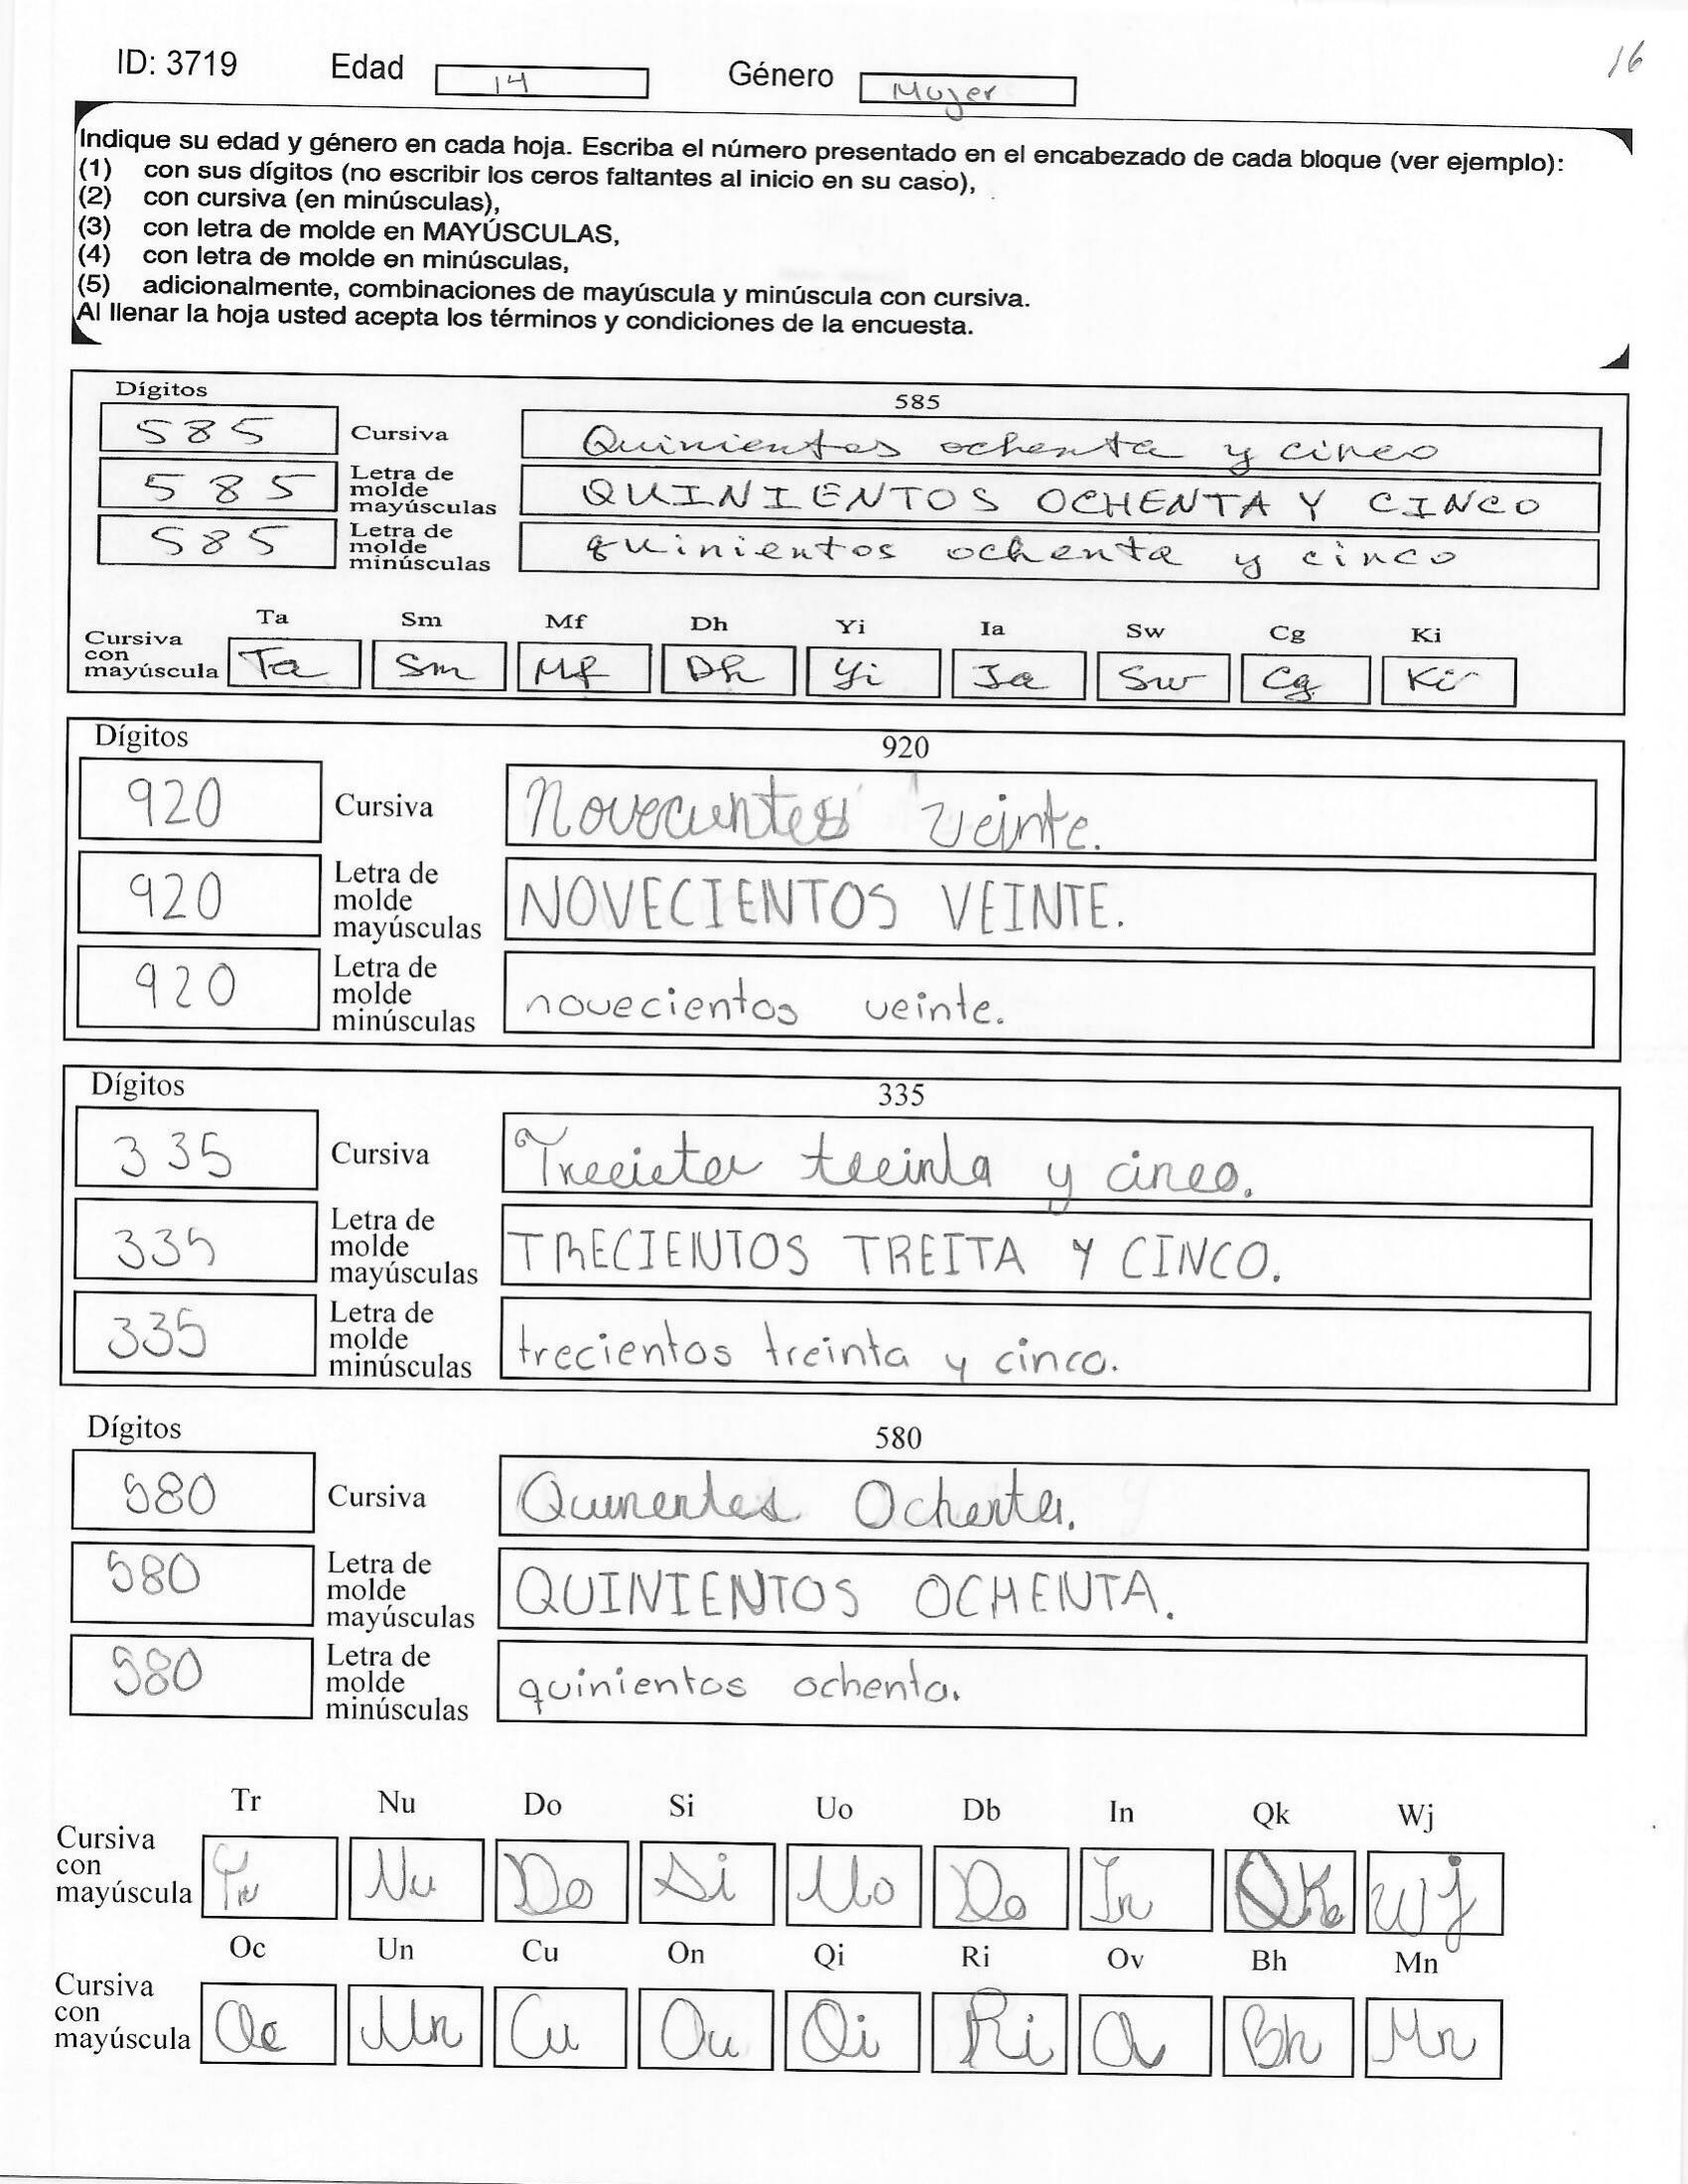 ID: 3719 Edad 14 Género Mujer 16
Indique su edad y género en cada hoja. Escriba el número presentado en el encabezado de cada bloque (ver ejemplo):
(1) con sus dígitos (no escribir los ceros faltantes al inicio en su caso),
(2) con cursiva (en minúsculas),
(3) con letra de molde en MAYÚSCULAS,
(4) con letra de molde en minúsculas,
(5) adicionalmente, combinaciones de mayúscula y minúscula con cursiva.
Al llenar la hoja usted acepta los términos y condiciones de la encuesta.
Dígitos 585
585 Cursiva Quinientos ochenta y cinco
585 Letra de molde mayúsculas QUINIENTOS OCHENTA Y CINCO
585 Letra de molde minúsculas quinientos ochenta y cinco
Ta Sm Mf Dh Yi Ia Sw Cg Ki
Cursiva con mayúscula Ta Sm Mf Dh Yi Ia Sw Cg Ki
Dígitos 920
920 Cursiva Novecientos veinte.
920 Letra de molde mayúsculas NOVECIENTOS VEINTE.
920 Letra de molde minúsculas novecientos veinte.
Dígitos 335
335 Cursiva treinta y cinco.
335 Letra de molde mayúsculas TRECIENTOS TREITA Y CINCO.
335 Letra de molde minúsculas trecientos treinta y cinco.
Dígitos 580
580 Cursiva Ochenta.
580 Letra de molde mayúsculas QUINIENTOS OCHENTA.
580 Letra de molde minúsculas quinientos ochenta.
Tr Nu Do Si Uo Db In Qk Wj
Cursiva con mayúscula Tr Nu Do Si Uo Do In Qk Wj
Oc Un Cu On Qi Ri Ov Bh Mn
Cursiva con mayúscula Oc Un Cu Ou Qi Ri Bh Mn